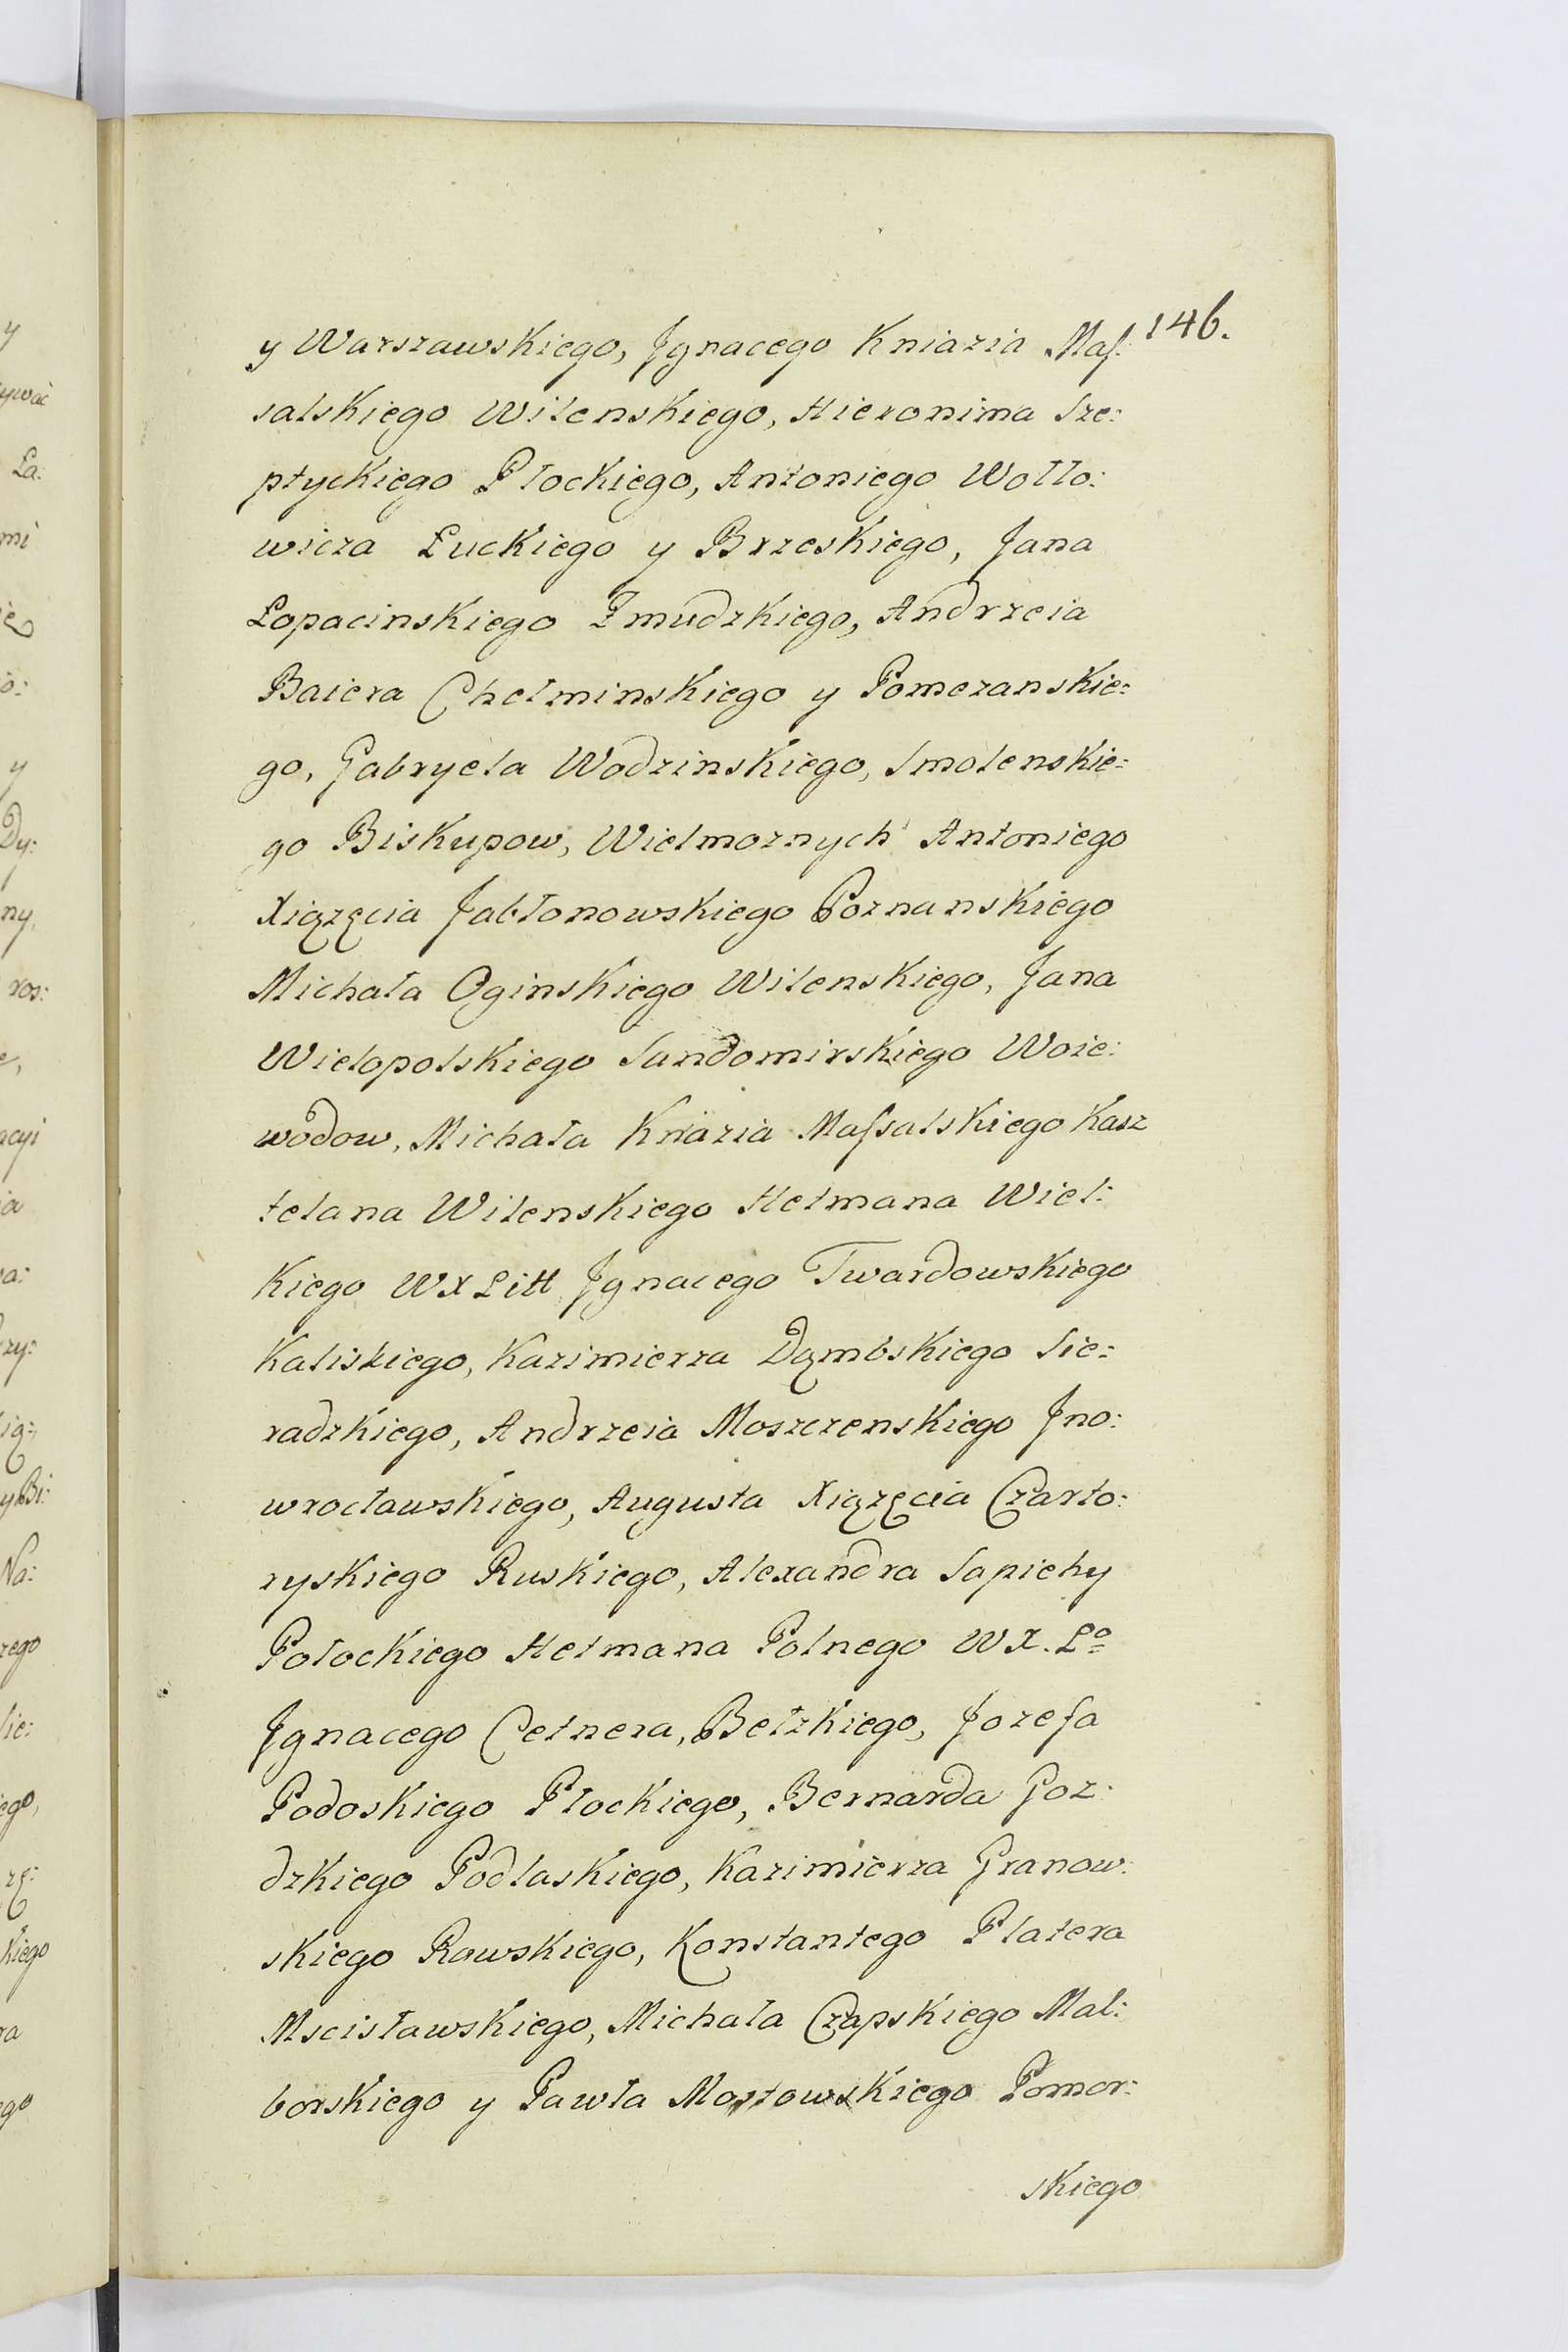 146.
y Warszawskiego, Jgnacego Kniazia Maſ:
salskiego Wilenskiego, Hieronima Sze:
ptyckiego Płockiego, Antoniego Wołło:
wicza Łuckiego y Brzeskiego, Jana
Łopacinskiego Zmudzkiego, Andrzeia
Baiera Chełminskiego y Pomezanskie:
go, Gabryela Wodzinskiego, Smolenskie:
go Biskupow, Wielmoznych Antoniego
Xiązęcia Jabłonowskiego Poznanskiego
Michała Oginskiego Wilenskiego, Jana
Wielopolskiego Sandomirskiego Woie:
wodow, Michała Kniazia Maſsalskiego Kasz
telana Wilenskiego Hetmana Wiel:
kiego WX Litt Jgnacego Twardowskiego
Kaliskiego, Kazimierza Dąmbskiego Sie:
radzkiego, Andrzeia Moszczenskiego Jno:
wrocławskiego, Augusta Xiązęcia Czarto:
ryskiego Ruskiego, Alexandra Sapiehy
Połockiego Hetmana Polnego WX. Lº
Jgnacego Cetnera, Bełzkiego, Jozefa
Podoskiego Płockiego, Bernarda Goz:
dzkiego Podlaskiego, Kazimierza Granow:
skiego Rawskiego, Konstantego Platera
Mscisławskiego, Michała Czapskiego Mal:
borskiego y Pawła Mostowskiego Pomor:
skiego